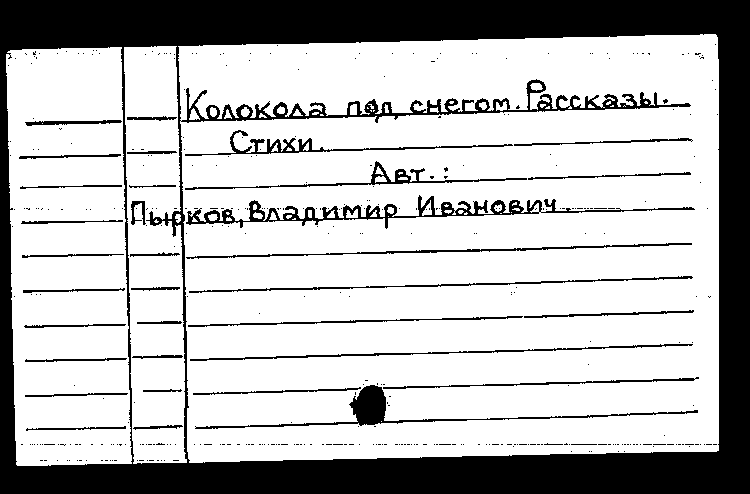 Колокола под снегом. Рассказы.
Стихи.
Авт.:
Пырков, Владимир Иванович.